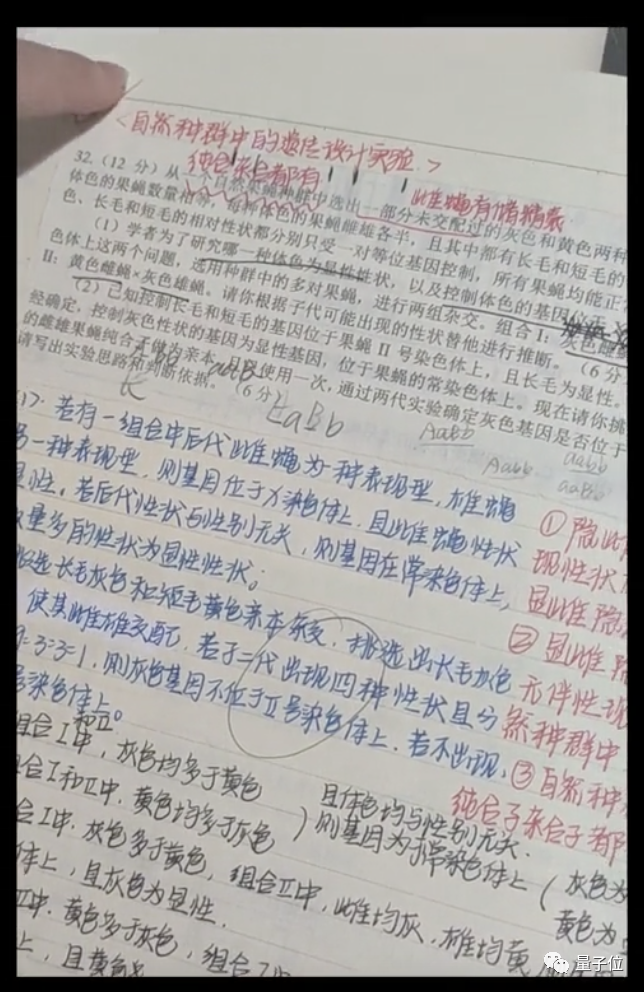 <自然种群中的遗传设计实验>
纯合杂合都有
32.(12 分)从一个自然果蝇种群中选出一部分未交配过的灰色和黄色两种
此雌蝇有储精囊
体色的果蝇数量相等,每种体色的果蝇雌雄各半,且其中都有长毛和短毛的
色、长毛和短毛的相对性状都分别只受一对等位基因控制,所有果蝇均能正
(1)学者为了研究哪一种体色为显性性状,以及控制体色的基因位于
色体上这两个问题,选用种群中的多对果蝇,进行两组杂交。组合I:灰色雌蝇
II:黄色雌蝇×灰色雄蝇。请你根据子代可能出现的性状替他进行推断。(6分
(2)已知控制长毛和短毛的基因位于果蝇 II 号染色体上,且长毛为显性。
经确定,控制灰色性状的基因为显性基因,位于果蝇的常染色体上。现在请你挑
的雌雄果蝇纯合子做为亲本,只使用一次,通过两代实验确定灰色基因是否位于
请写出实验思路和判断依据。(6分
aaBB
长
EaBb
Aabb
Aabb
aabb
aaBb
(1). 若有一组合中后代雌蝇为一种表现型,雄蝇
另一种表现型,则基因位于X染色体上,且雌蝇性状
显性。若后代性状与性别无关,则基因在常染色体上,
数量多的性状为显性性状。
挑选长毛灰色和短毛黄色亲本杂交,挑选出长毛灰色
使其雌雄交配,若子二代出现四种性状且分
9:3:3:1,则灰色基因不位于II号染色体上.若不出现,
号染色体上。
和II
组合I中,灰色均多于黄色
组合I和II中.黄色均多于灰色
且体色均与性别无关.
则基因为于常染色体上(
灰色为
黄色为
组合I中.灰色多于黄色,组合II中,雌均灰,雄均黄
体上,且灰色为显性.
II中.黄色多于灰色,组合I中
上,且黄色
①隐雌
现性状
显雌隐
②显雌
无伴性现
然种群中
③自然种
纯合子杂合子都
量子位